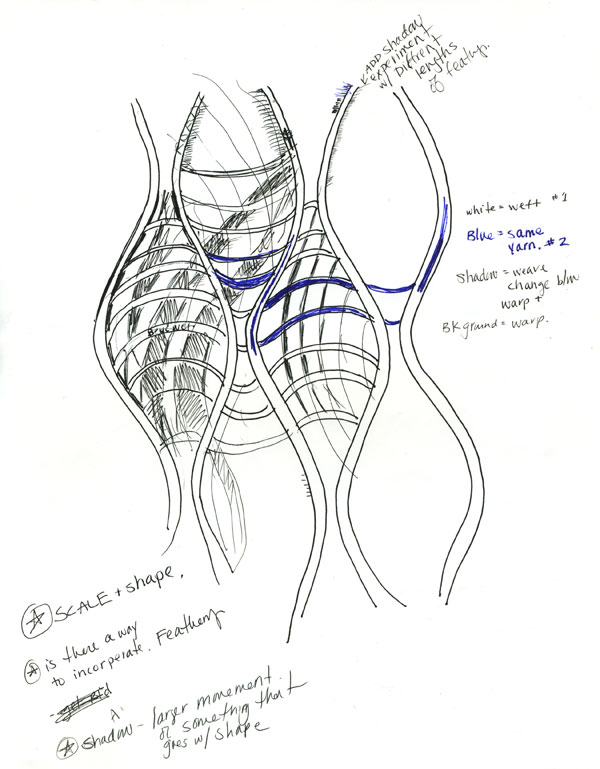 ADD shadow
experiment
w/ Diffrent
lengths
of feathy.
white = weft #1
Blue = same
yarn. #2
Shadow = weave
change b/w
warp +
BKground = warp.
SCALE + shape.
is there a way
to incorperate. Feathery
Shadow - larger movement
of something that
goes w/ shape